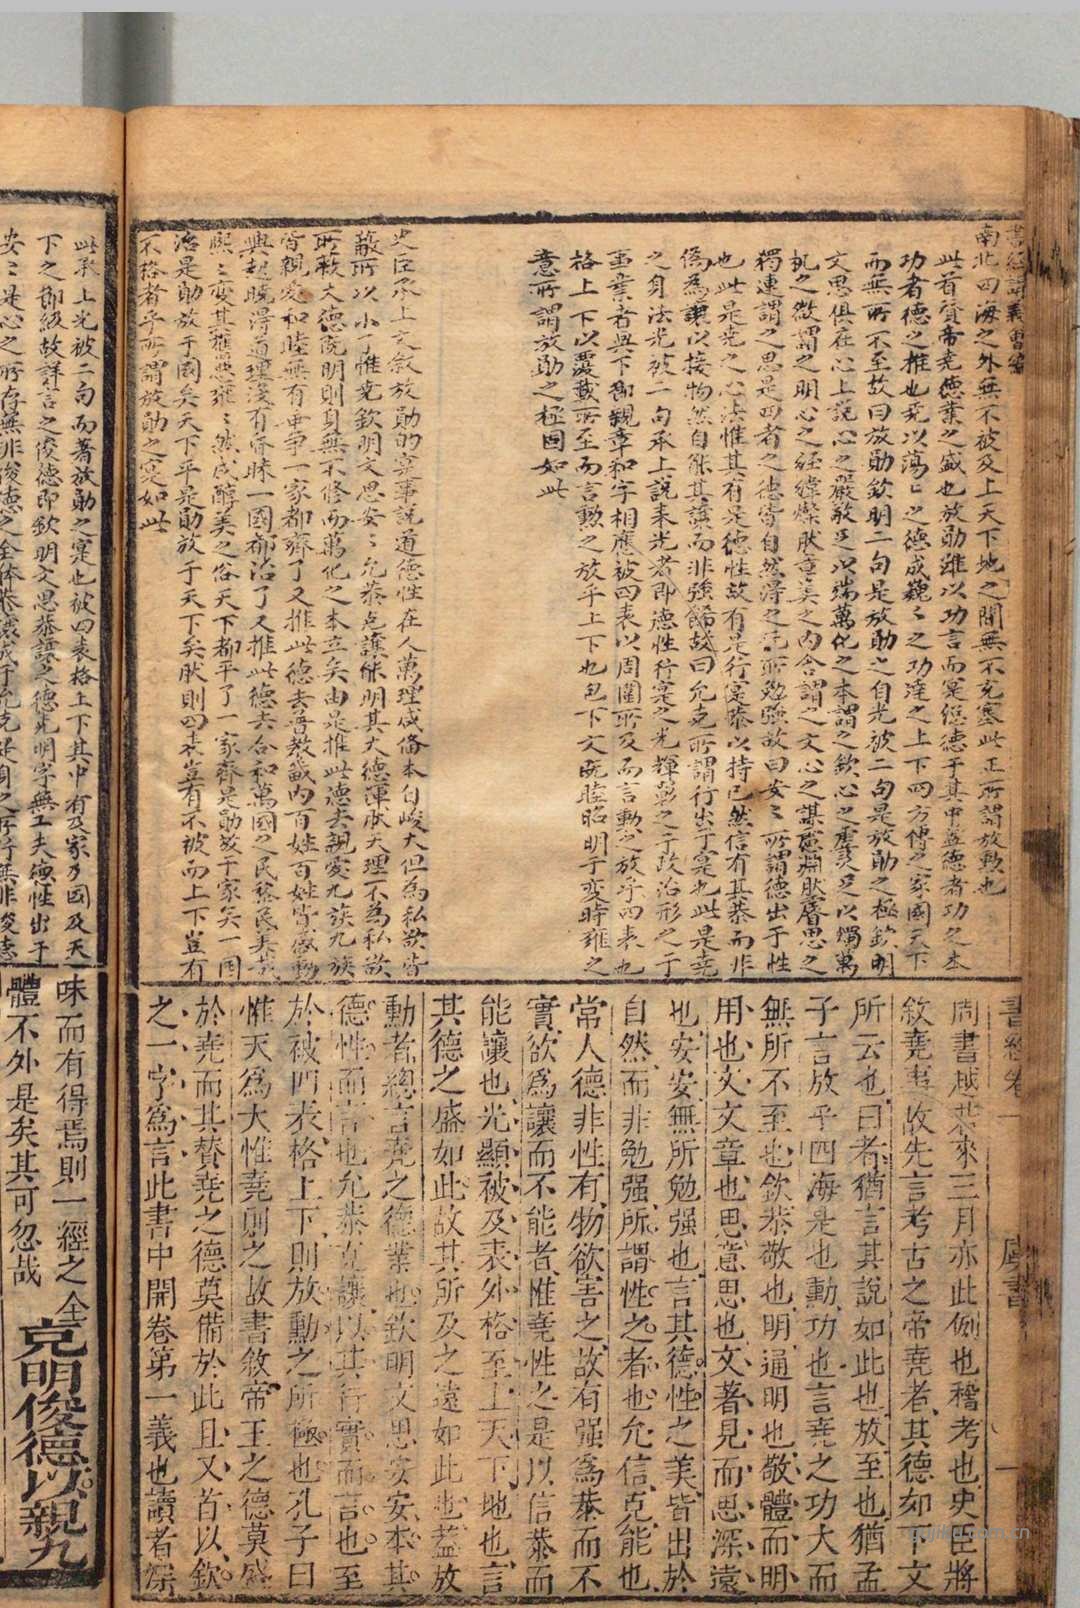 南北四海之外無不被及上天下地之間無不充塞此正所謂放勲也
此首賛帝堯德業之盛也放勛雖以功言而寔經德于其中盖德者功之本
功者德之推也堯以蕩々之德成巍々之功達之上下四方傳之家國天下
而無所不至故曰放勛欽明二句是放勛之自光被二句是放勛之極欽明
文思俱在心上説心之嚴敬足以端萬化之本謂之欽心之虛灵足以燭萬
机之微謂之明心之經緯燦然章美之内含謂之文心之謀慮淵然睿思之
獨運謂之思是四者之德皆自然淂之无所勉強故曰安々所謂德出于性
也此是堯之心法惟其有是德性故有是行寔恭以持已然信有其恭而非
偽為讓以接物然自能其讓而非強餙故曰允克所謂行出于寔也此是堯
之身法光被二句承上説来光者即德性行寔之光輝彰之于政治形之于
事業者與下節親章和字相應被四表以周圍所及而言勲之放乎四表也
格上下以覆載所至而言勲之放乎上下也包下文既睦昭明于变時雍之
意所謂放勛之極固如此
史臣承上文敘放勛的寔事説道德性在人萬理咸備本自峻大但為私欲皆
蔽所以小了惟堯欽明文思安々允恭克讓能明其大德渾然天理不為私欲
所蔽大德既明則身無不修而萬化之本立矣由是推此德去親愛九族九族
皆親愛和睦無有乖爭一家都齊了又推此德去普教畿内百姓百姓皆感動
興起曉淂道理沒有昏昧一國都治了又推此德去合和萬國之民黎民
熙々变其雍々然成醇美之俗天下都平了一家齊是勛放于家矣一国
治是勛放于國矣天下平是勛放于天下矣然則四表豈有不被而上下豈有
不格者乎所謂放勛之寔如此
書經卷一 虞書 一
周書越若來三月亦此例也稽考也史臣將
敘堯事故先言考古之帝堯者其德如下文
所云也曰者猶言其說如此也放至也猶孟
子言放乎四海是也勳功也言堯之功大而
無所不至也欽恭敬也明通明也敬體而明
用也文文章也思意思也文著見而思深遠
也安安無所勉强也言其德性之美皆出於
自然而非勉强所謂性之者也允信克能也
常人德非性有物欲害之故有强為恭而不
實欲為讓而不能者惟堯性之是以信恭而
能讓也光顯被及表外格至上天下地也言
其德之盛如此故其所及之遠如此也蓋放
勳者總言堯之德業也欽明文思安安本其
德性而言也允恭克讓以其行實而言也至
於被四表格上下則放勳之所極也孔子曰
惟天為大惟堯則之故書敘帝王之德莫盛
於堯而其贊堯之德莫備於此且又首以欽
之一字為言此書中開卷第一義也讀者深
此承上光被二句而著放勛之寔也被四表格上下其中有及家及國及天
下之節級故詳言之俊德即欽明文思恭讓之德克明字無工夫德性出于
安々是心之所存無非俊德之全体恭讓成于允克是身之所行無非俊德
味而有得焉則一經之全
體不外是矣其可忽哉
克明俊德以親九